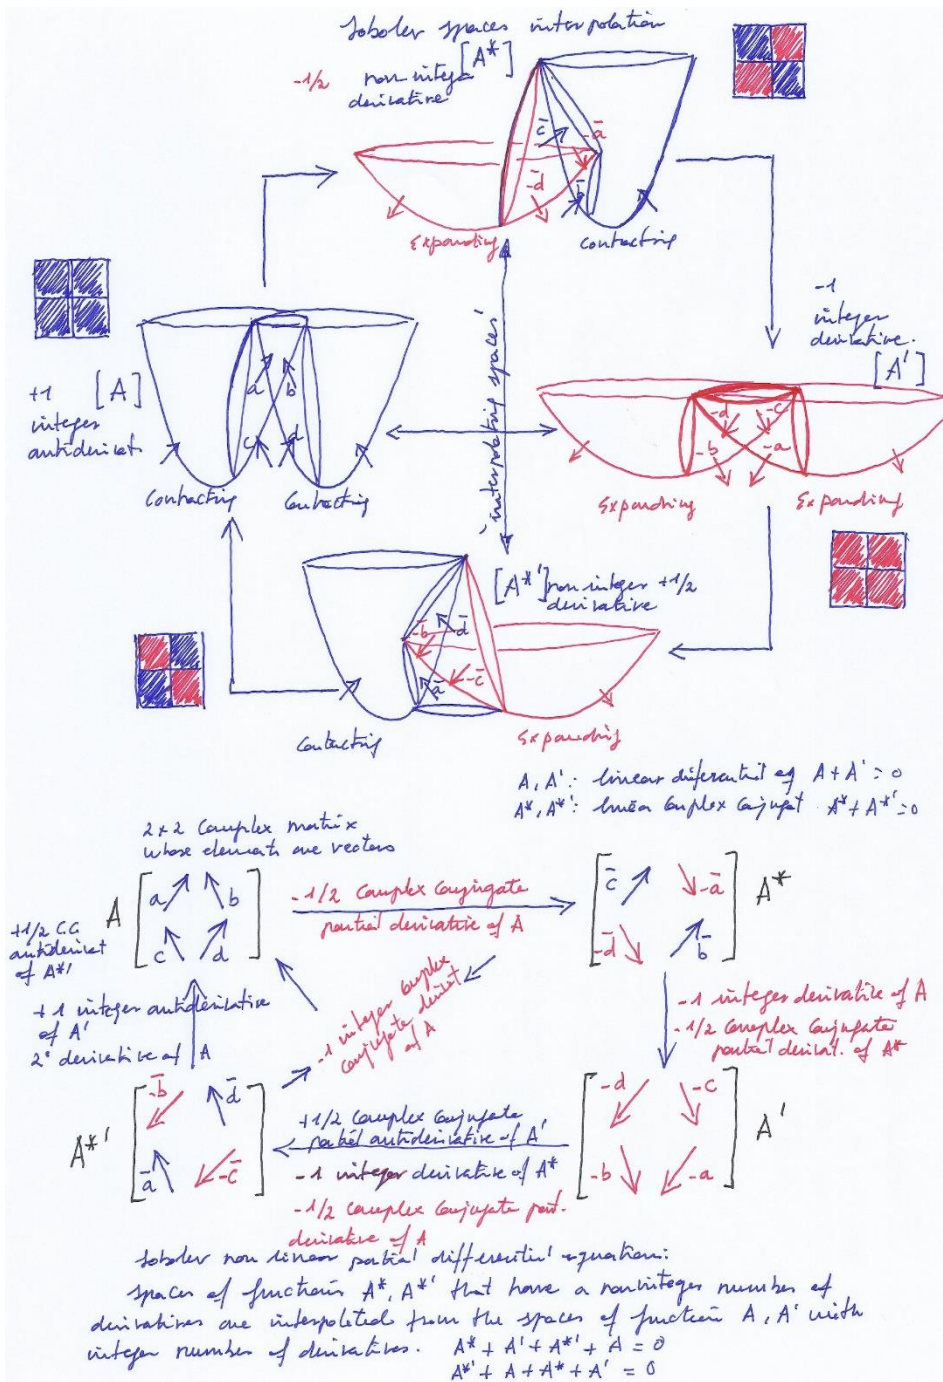 Soboler spaces interpolation
-1/2 non-intege [A*]
derivative
c̄ -ā
-d̄ b̄
Expanding Contacting
-1
integer
derivative.
[A']
+1 [A]
integer
antiderivat.
a b
c d
Contracting Contacting
interpolating spaces
-d -c
-b -a
Expanding Expanding
[A*'] non integer +1/2
derivative
-b̄ d̄
ā -c̄
Contacting Expanding
A, A': linear diferential eq A + A' = 0
A*, A*': linear complex conjugat A* + A*' = 0
2x2 Complex matrix
whose elements are vectors
A a b
c d
-1/2 Complex Conjugate
partial derivative of A
c̄ -ā A*
-d̄ b̄
+1/2 CC
antiderivat
of A*'
+1 integer antiderivative
of A'
2° derivative of A
-1 integer complex
conjugate derivat
of A
-1 integer derivative of A
-1/2 Complex Conjugate
partial derivat. of A*
A*' -b̄ d̄
ā -c̄
+1/2 Complex Conjugate
partial antiderivative of A'
-1 integer derivative of A*
-1/2 Complex Conjugate part.
derivative of A
-d -c A'
-b -a
Soboler non linear partial differential equation:
spaces of functions A*, A*' that have a noninteger number of
derivatives are interpolated from the spaces of function A, A' with
integer number of derivatives. A* + A' + A*' + A = 0
A*' + A + A* + A' = 0